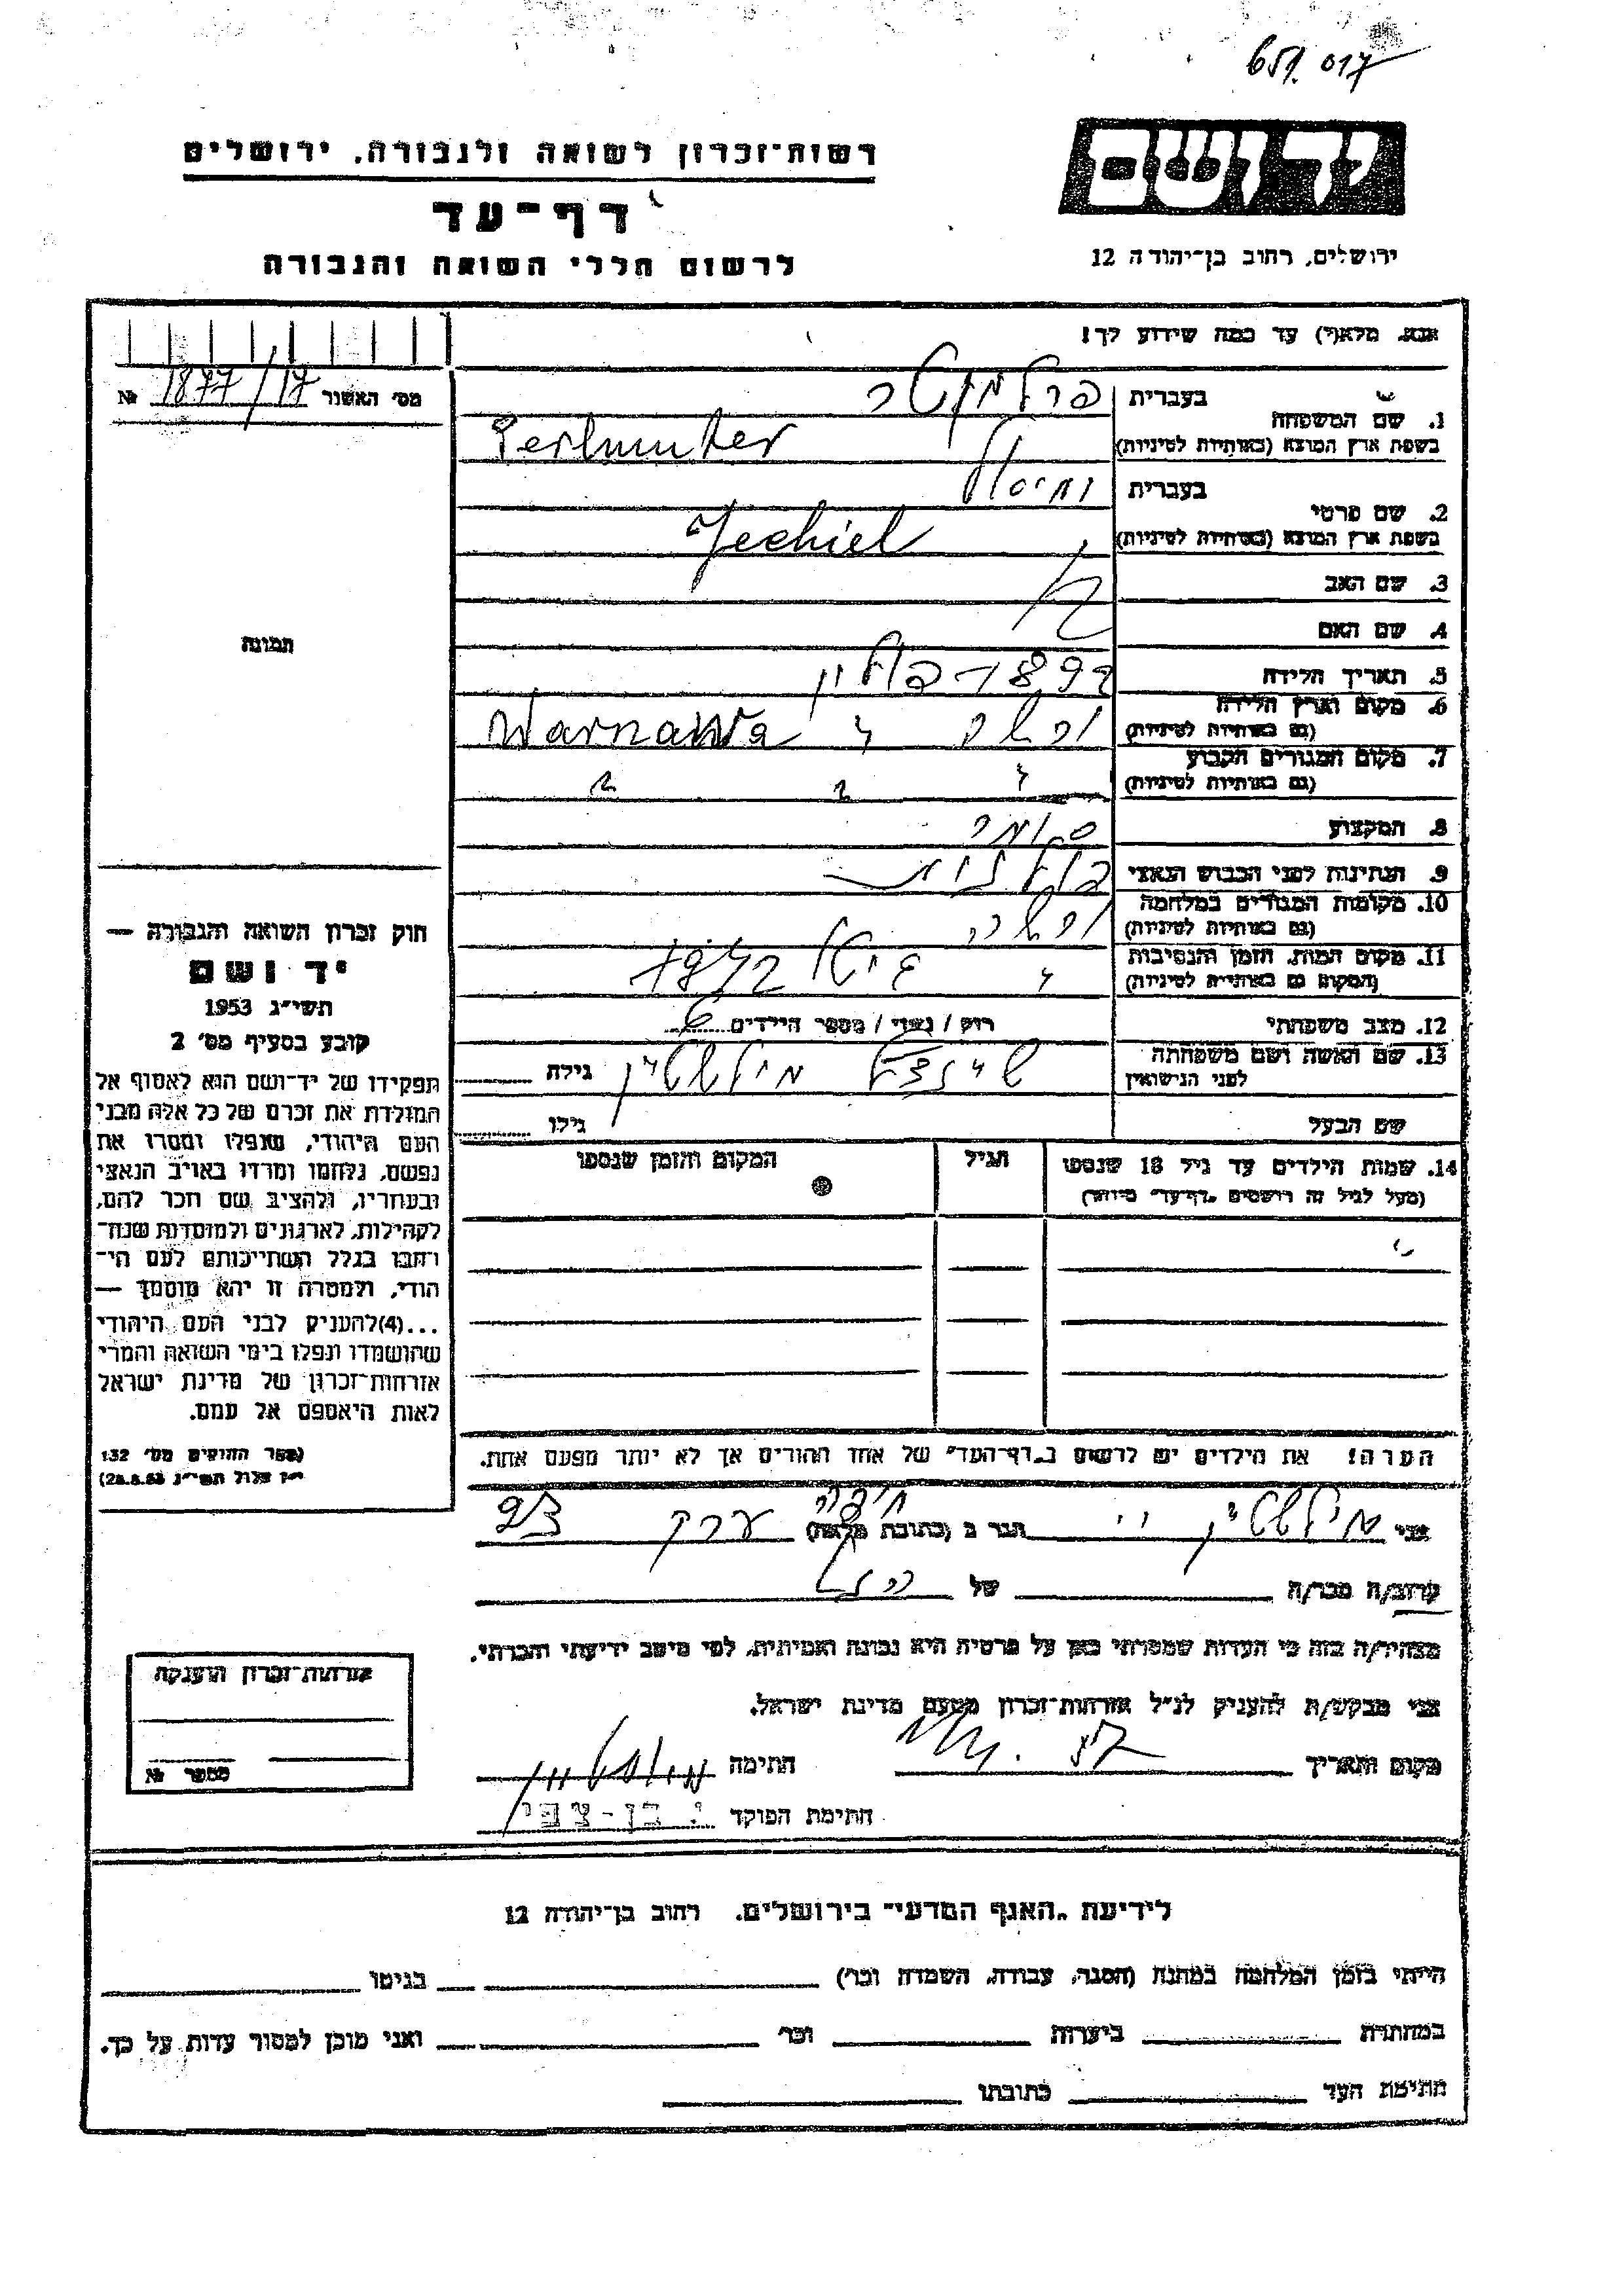 651.017
רשות־זכרון לשואה ולגבורה, ירושלים
יד ושם
דף־עד
לרשום חללי השואה והגבורה
ירושלים, רחוב בן־יהודה 12
אנא, מלא(י) עד כמה שידוע לך!
מס׳ האשור 1877/17 №
1. שם המשפחה
בעברית פרלמוטר
בשפת ארץ המוצא (באותיות לטיניות) Perlmutter
2. שם פרטי
בעברית
בשפת ארץ המוצא (באותיות לטיניות) Jechiel
3. שם האב
4. שם האם
תמונה
5. תאריך הלידה
6. מקום וארץ הלידה
(גם באותיות לטיניות)
7. מקום המגורים הקבוע
(גם באותיות לטיניות)
8. המקצוע סוחר
9. הנתינות לפני הכבוש הנאצי פולנית
10. מקומות המגורים במלחמה
(גם באותיות לטיניות)
11. מקום המות, הזמן והנסיבות
(המקום גם באותיות לטיניות)
12. מצב משפחתי רוק / נשוי / מספר הילדים 6
13. שם האשה ושם משפחתה
לפני הנישואין שיינדל מילשטיין גילה
שם הבעל גילו
14. שמות הילדים עד גיל 18 שנספו
(מעל לגיל זה רושמים „דף־עד״ מיוחד)
הגיל
המקום והזמן שנספו
הערה! את הילדים יש לרשום ב„דף־העד״ של אחד ההורים אך לא יותר מפעם אחת.
חוק זכרון השואה והגבורה —
יד ושם
תשי״ג 1953
קובע בסעיף מס׳ 2
תפקידו של יד־ושם הוא לאסוף אל
המולדת את זכרם של כל אלה מבני
העם היהודי, שנפלו ומסרו את
נפשם, נלחמו ומרדו באויב הנאצי
ובעוזריו, ולהציב שם וזכר להם,
לקהילות, לארגונים ולמוסדות שנח־
רבו בגלל השתייכותם לעם הי־
הודי, ולמטרה זו יהא מוסמך —
...(4)להעניק לבני העם היהודי
שהושמדו ונפלו בימי השואה והמרי
אזרחות־זכרון של מדינת ישראל
לאות היאספם אל עמם.
(ספר החוקים מס׳ 132
י״ז אלול תשי״ג 28.8.53)
אני מילשטיין הגר ב (כתובת מלאה) חיפה
קרוב/ה מכר/ה של
מצהיר/ה בזה כי העדות שמסרתי כאן על פרטיה היא נכונה ואמיתית, לפי מיטב ידיעתי והכרתי.
אני מבקש/ת להעניק לנ״ל אזרחות־זכרון מטעם מדינת ישראל.
מקום ותאריך חתימה מילשטיין
חתימת הפוקד י. בן-צבי
אזרחות־זכרון הוענקה
מספר №
לידיעת „האגף המדעי״ בירושלים, רחוב בן־יהודה 12
הייתי בזמן המלחמה במחנה (הסגר, עבודה, השמדה וכו׳) בגיטו
במחתרת ביערות וכו׳ ואני מוכן למסור עדות על כך.
חתימת העד כתובתו